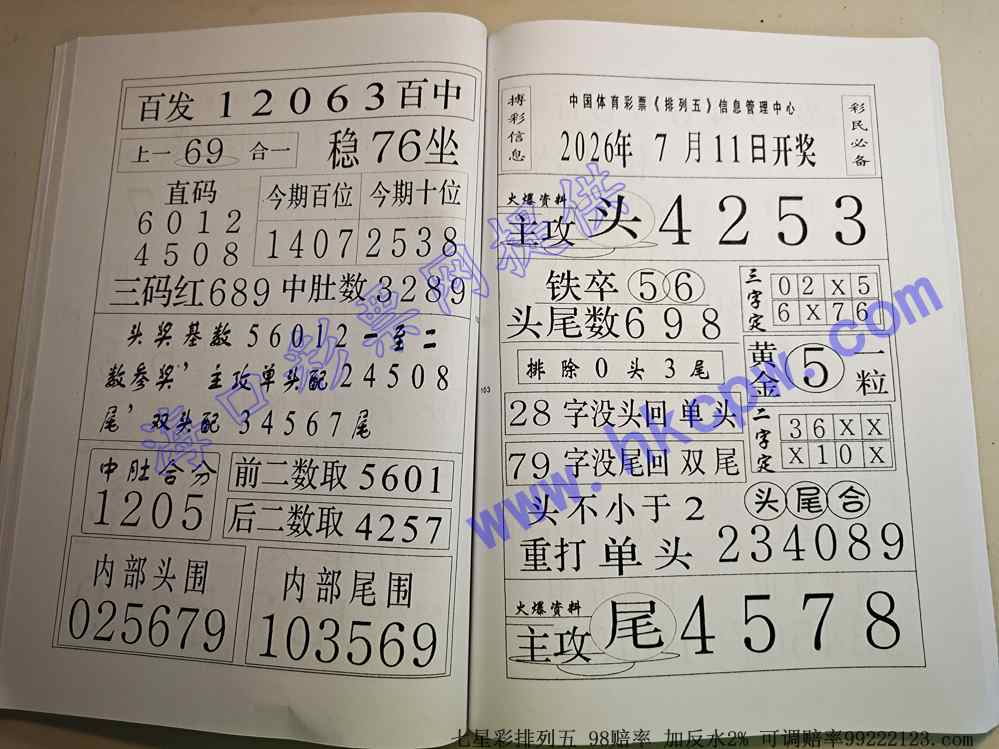 百发 12063 百中
上一 69 合一 稳 76 坐
直码
6012
4508
今期百位 今期十位
1407 2538
三码红689 中肚数3289
头奖基数56012一至二
数参奖’主攻单头配24508
尾’双头配34567尾
中肚合分
1205
前二数取 5601
后二数取 4257
内部头围
025679
内部尾围
103569
103
搏彩信息
中国体育彩票《排列五》信息管理中心
2026年 7 月11日开奖
彩民必备
火爆资料
主攻 头 4253
铁卒 56
头尾数698
三字定
02X5
6X76
排除0头3尾
黄金 5 一粒
28字没头回单头
79字没尾回双尾
二字定
36XX
X10X
头不小于2
头尾合
重打单头 234089
火爆资料
主攻 尾 4578
海口彩票网提供
www.hkcpw.com
七星彩排列五 98赔率 加反水2% 可调赔率99222123.com